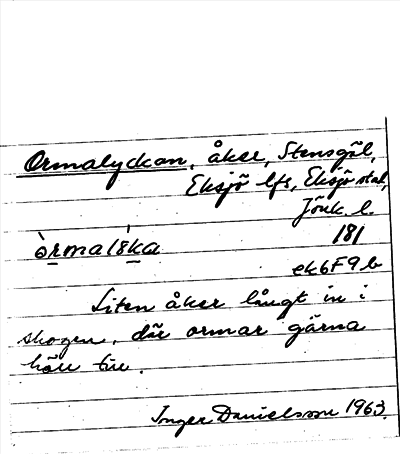 Ormalyckan, åker, Stensgöl,
Eksjö lfs, Eksjö stad,
Jönk. l.
òrmalöka 181
ek6F9b
Liten åker långt in i
skogen, där ormar gärna
höll till.
Inger Danielsson 1963.